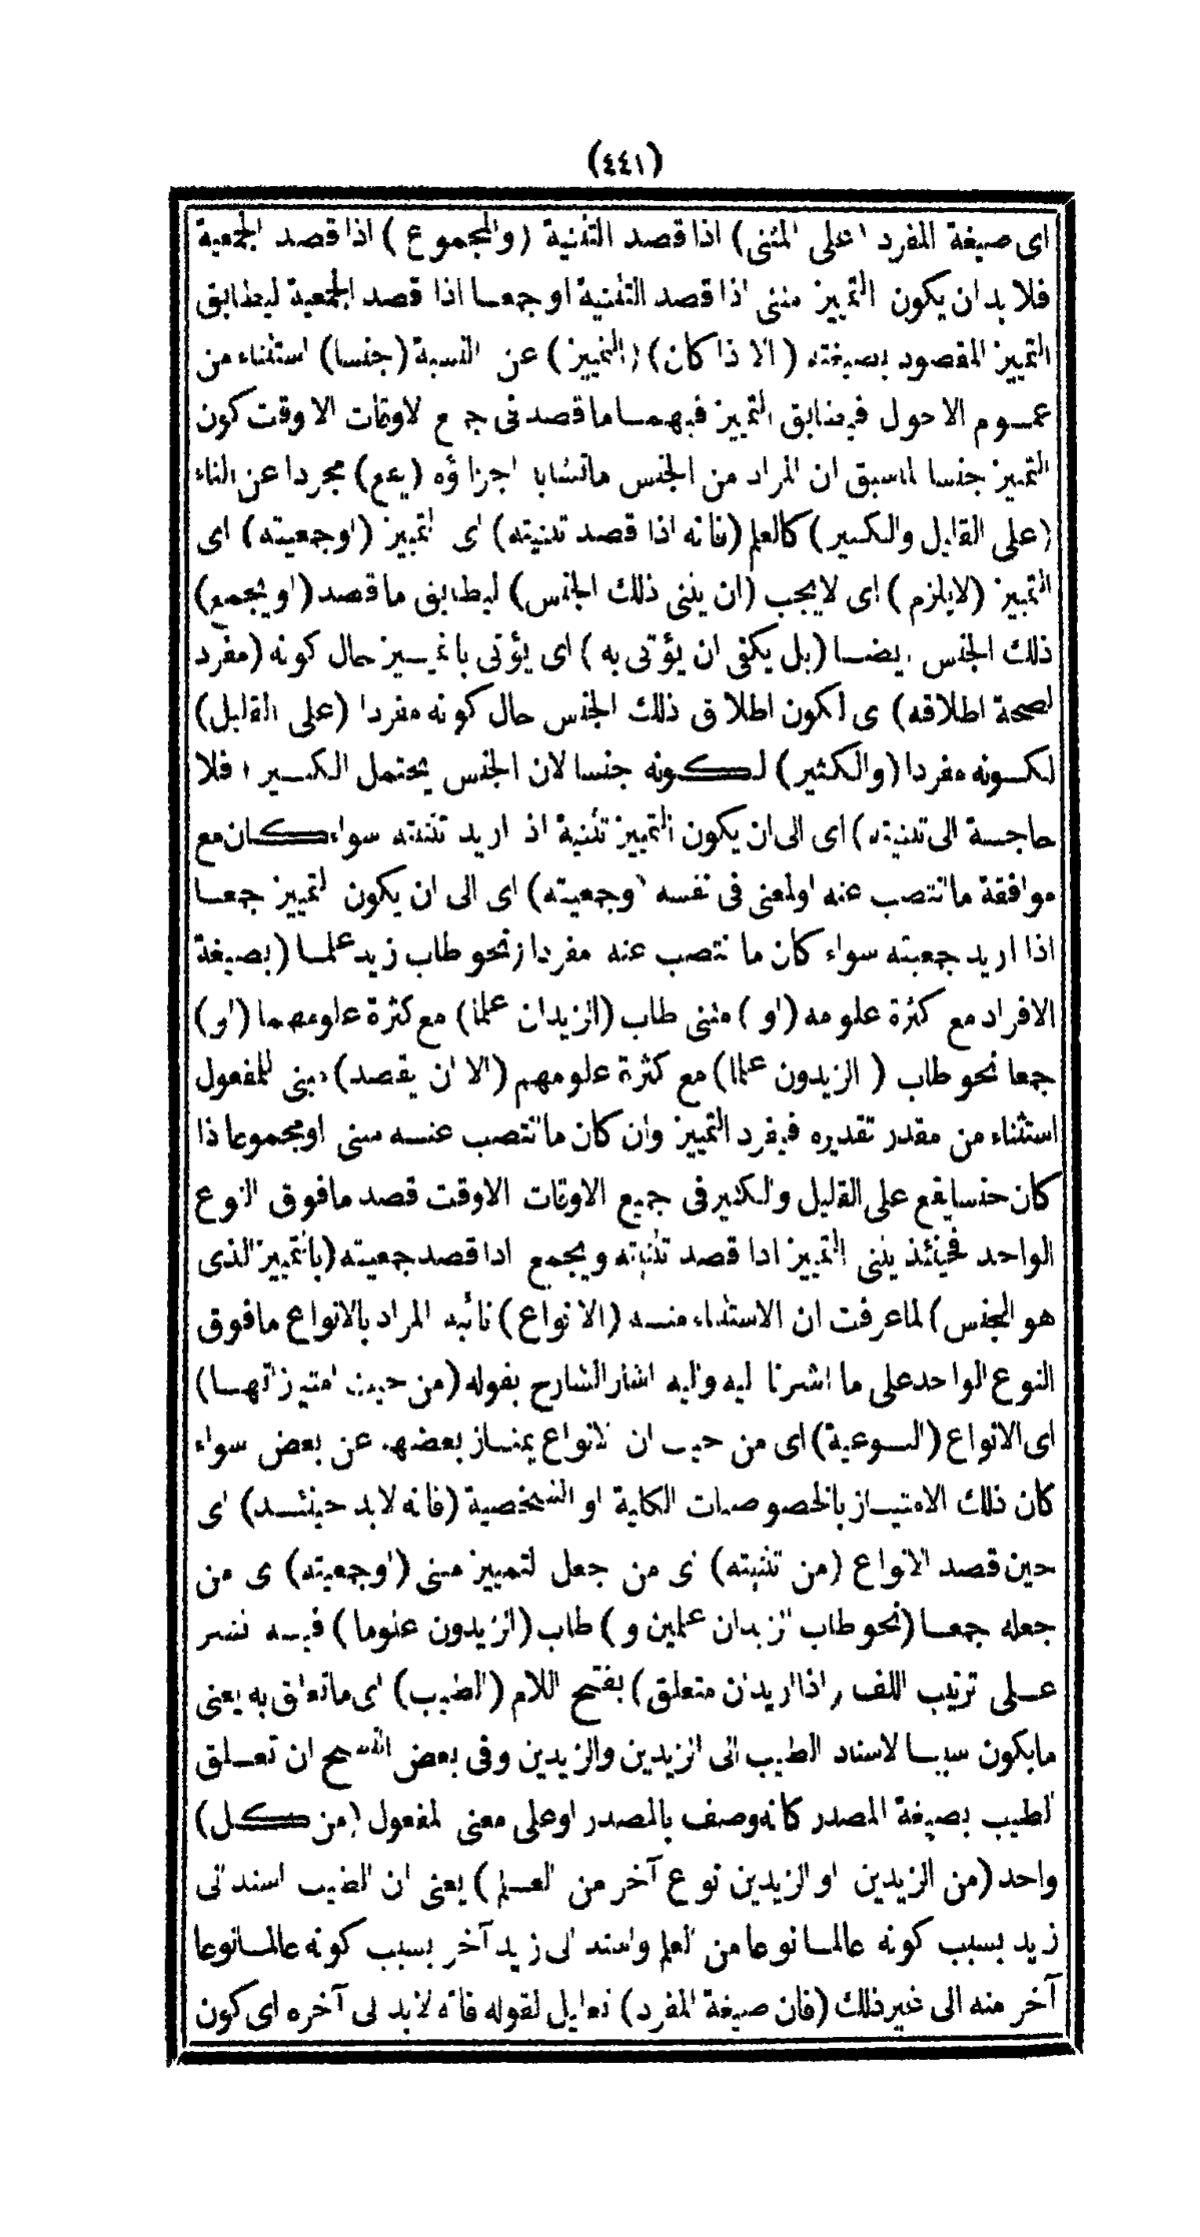 (٤٤١)
اى صيغة المفرد (على المثنى) اذا قصد التثنية (والمجموع) اذا قصد الجمعية
فلا بد ان يكون التمييز مثنى اذا قصد التثنية او جمعا اذا قصد الجمعية ليطابق
التمييز المقصود بصيغته (الا اذا كان) (التمييز) عن النسبة (جنسا) استثناء من
عموم الاحوال فيطابق التمييز فيهما ما قصد فى جميع الاوقات الا وقت كون
التمييز جنسا لما سبق ان المراد من الجنس ما تشابه اجزاؤه (يقع) مجردا عن التاء
(على القليل والكثير) كالعلم (فانه اذا قصد تثنيته) اى التمييز (او جمعيته) اى
التمييز (لا يلزم) اى لا يجب (ان يثنى ذلك الجنس) ليطابق ما قصد (او يجمع)
ذلك الجنس ايضا (بل يكفى ان يؤتى به) اى يؤتى بالتمييز حال كونه (مفردا
لصحة اطلاقه) اى لكون اطلاق ذلك الجنس حال كونه مفردا (على القليل)
لكونه مفردا (والكثير) لكونه جنسا لان الجنس يحتمل الكثير (فلا
حاجة الى تثنيته) اى الى ان يكون التمييز تثنية اذا اريد تثنيته سواء كان مع
موافقة ما انتصب عنه او لمعنى فى نفسه (وجمعيته) اى الى ان يكون التمييز جمعا
اذا اريد جمعيته سواء كان ما انتصب عنه مفردا (نحو طاب زيد علما) بصيغة
الافراد مع كثرة علومه (او) مثنى طاب (الزيدان علما) مع كثرة علومهما (او)
جمعا نحو طاب (الزيدون علما) مع كثرة علومهم (الا ان يقصد) مبنى للمفعول
استثناء من مقدر تقديره فيفرد التمييز وان كان ما انتصب عنه مثنى او مجموعا اذا
كان جنسا يقع على القليل والكثير فى جميع الاوقات الا وقت قصد ما فوق النوع
الواحد فحينئذ يثنى التمييز اذا قصد تثنيته ويجمع اذا قصد جمعيته (بالتمييز الذى
هو الجنس) لما عرفت ان الاستثناء منه (الانواع) نائبه المراد بالانواع ما فوق
النوع الواحد على ما اشرنا اليه واليه اشار الشارح بقوله (من حيث امتيازاتها)
اى الانواع (النوعية) اى من حيث ان الانواع يمتاز بعضها عن بعض سواء
كان ذلك الامتياز بالخصوصيات الكلية او الشخصية (فانه لا بد حينئذ) اى
حين قصد الانواع (من تثنيته) اى من جعل التمييز مثنى (او جمعيته) اى من
جعله جمعا (نحو طاب الزيدان علمين و) طاب (الزيدون علوما) فيه نشر
على ترتيب اللف (اذا اريد ان متعلق) بفتح اللام (الطيب) اى ما تعلق به يعنى
ما يكون سببا لاسناد الطيب الى الزيدين والزيدين وفى بعض النسخ ان تعلق
الطيب بصيغة المصدر كانه وصف بالمصدر او على معنى المفعول (من كل)
واحد (من الزيدين او الزيدين نوع آخر من العلم) يعنى ان الطيب اسند الى
زيد بسبب كونه عالما نوعا من العلم واسند الى زيد آخر بسبب كونه عالما نوعا
آخر منه الى غير ذلك (فان صيغة المفرد) تعليل لقوله فانه لا بد الى آخره اى كون